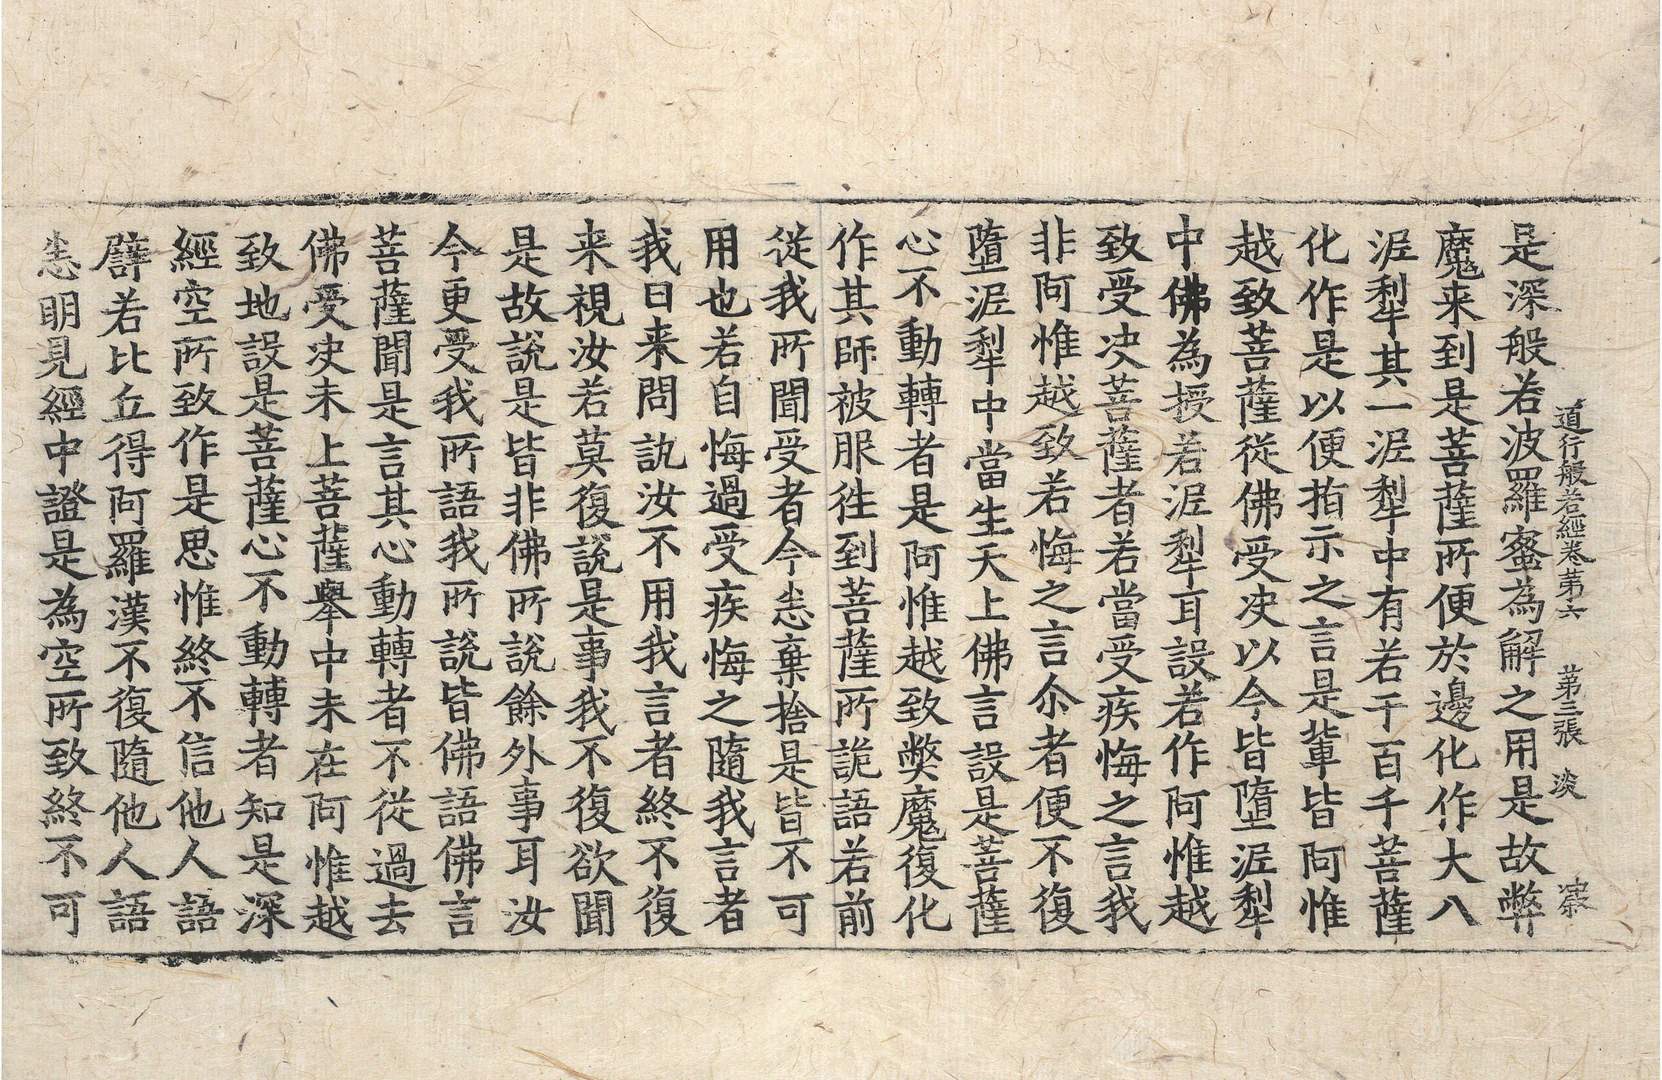 道行般若經卷第六 第三張 淡
是深般若波羅蜜為解之用是故弊
魔来到是菩薩所便於邊化作大八
泥犁其一泥犁中有若干百千菩薩
化作是以便指示之言是輩皆阿惟
越致菩薩從佛受决以今皆墮泥犁
中佛為授若泥犁耳設若作阿惟越
致受决菩薩者若當受疾悔之言我
非阿惟越致若悔之言尒者便不復
墮泥犁中當生天上佛言設是菩薩
心不動轉者是阿惟越致弊魔復化
作其師被服徃到菩薩所詭語若前
從我所聞受者今悉棄捨是皆不可
用也若自悔過受疾悔之隨我言者
我日来問訊汝不用我言者終不復
来視汝若莫復說是事我不復欲聞
是故說是皆非佛所說餘外事耳汝
今更受我所語我所說皆佛語佛言
菩薩聞是言其心動轉者不從過去
佛受决未上菩薩舉中未在阿惟越
致地設是菩薩心不動轉者知是深
經空所致作是思惟終不信他人語
辟若比丘得阿羅漢不復隨他人語
悉明見經中證是為空所致終不可